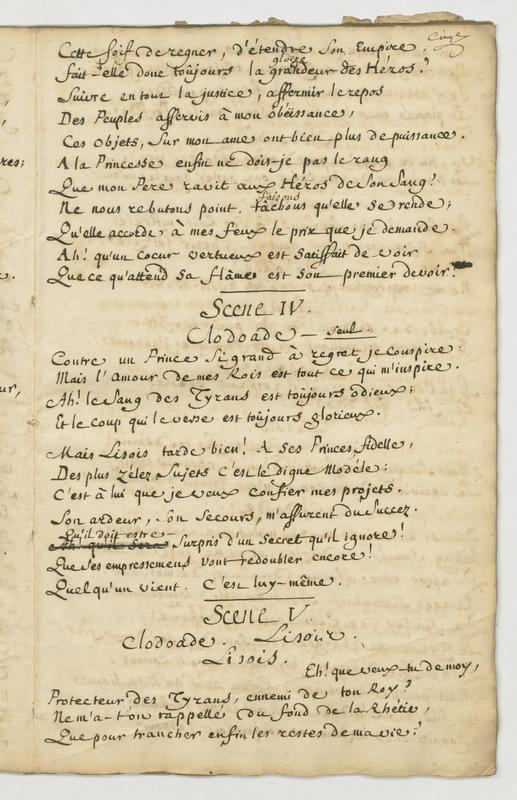 Cinq
Cette soif de regner, d'étendre son Empire,
gloire
fait-elle donc toûjours la grandeur des Héros?
Suivre en tout la justice, affermir le repos
Des Peuples asservis à mon obéïssance,
Ces objets, sur mon ame ont bien plus de puissance.
A la Princesse enfin ne dois-je pas le rang
Que mon Pere ravit aux Héros de son sang?
faisons
Ne nous rebutons point. tâchons qu'elle se rende;
Qu'elle accorde à mes feux le prix que je demande.
Ah! qu'un coeur vertueux est satisfait de voir
Que ce qu'attend sa flâme est son premier devoir!
Scene IV.
Clodoade – seul.
Contre un Prince si grand à regret je conspire:
Mais l'Amour de mes Rois est tout ce qui m'inspire.
Ah! le sang des Tyrans est toûjours odieux;
Et le coup qui le verse est toûjours glorieux.
Mais Lisois tarde bien! A ses Princes fidelle,
Des plus zélez sujets c'est le digne Modéle:
C'est à lui que je veux confier mes projets.
Son ardeur, son secours, m'assurent du succez.
Qu'il doit estre
Ah! qu'il sera surpris d'un secret qu'il ignore!
Que ses empressemens vont redoubler encore!
Quelqu'un vient. C'est luy-même.
Scene V.
Clodoade. Lisois.
Lisois.
Eh! que veux-tu de moy,
Protecteur des Tyrans, ennemi de ton Roy?
Ne m'a-t'on rappellé du fond de la Rhétie,
Que pour trancher enfin les restes de ma vie?